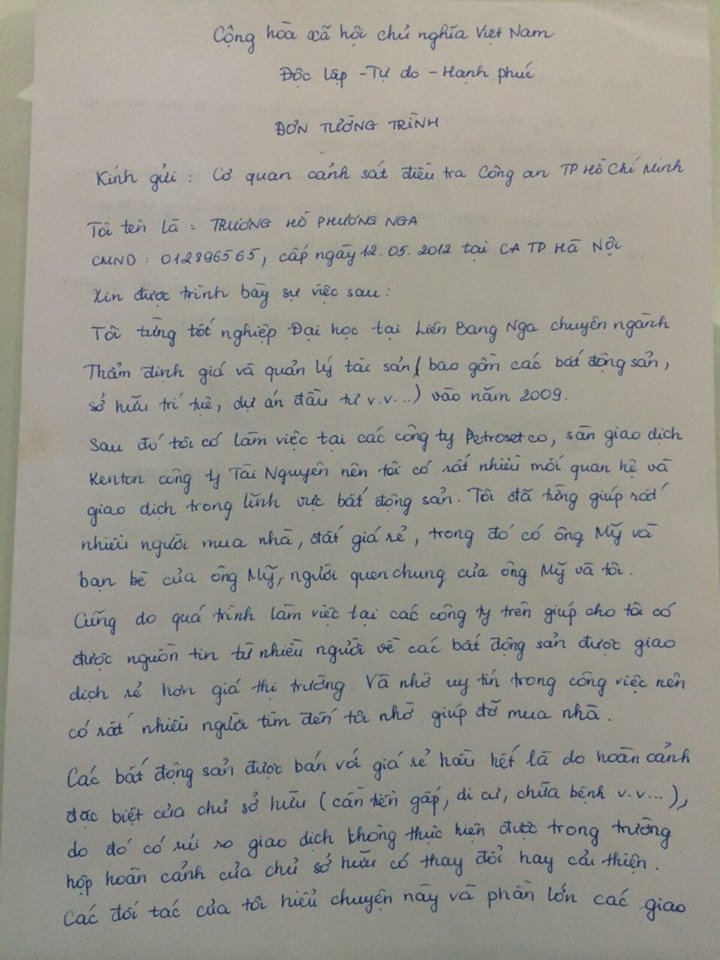 Cộng hòa xã hội chủ nghĩa Việt Nam
Độc lập - Tự do - Hạnh phúc
ĐƠN TƯỜNG TRÌNH
Kính gửi : Cơ quan cảnh sát điều tra Công an TP Hồ Chí Minh
Tôi tên là : TRƯƠNG HỒ PHƯƠNG NGA
CMND : 012896565, cấp ngày 12.05.2012 tại CA TP Hà Nội
Xin được trình bày sự việc sau :
Tôi từng tốt nghiệp Đại học tại Liên Bang Nga chuyên ngành
Thẩm định giá và quản lý tài sản ( bao gồm các bất động sản,
sở hữu trí tuệ, dự án đầu tư v.v...) vào năm 2009.
Sau đó tôi có làm việc tại các công ty Petrosetco, sàn giao dịch
Kenton công ty Tài Nguyên nên tôi có rất nhiều mối quan hệ và
giao dịch trong lĩnh vực bất động sản. Tôi đã từng giúp rất
nhiều người mua nhà, đất giá rẻ, trong đó có ông Mỹ và
bạn bè của ông Mỹ, người quen chung của ông Mỹ và tôi.
Cũng do quá trình làm việc tại các công ty trên giúp cho tôi có
được nguồn tin từ nhiều người về các bất động sản được giao
dịch rẻ hơn giá thị trường. Và nhờ uy tín trong công việc nên
có rất nhiều người tìm đến tôi nhờ giúp đỡ mua nhà.
Các bất động sản được bán với giá rẻ hầu hết là do hoàn cảnh
đặc biệt của chủ sở hữu ( cần tiền gấp, di cư, chữa bệnh v.v...),
do đó có rủi ro giao dịch không thực hiện được trong trường
hợp hoàn cảnh của chủ sở hữu có thay đổi hay cải thiện.
Các đối tác của tôi hiểu chuyện này và phần lớn các giao